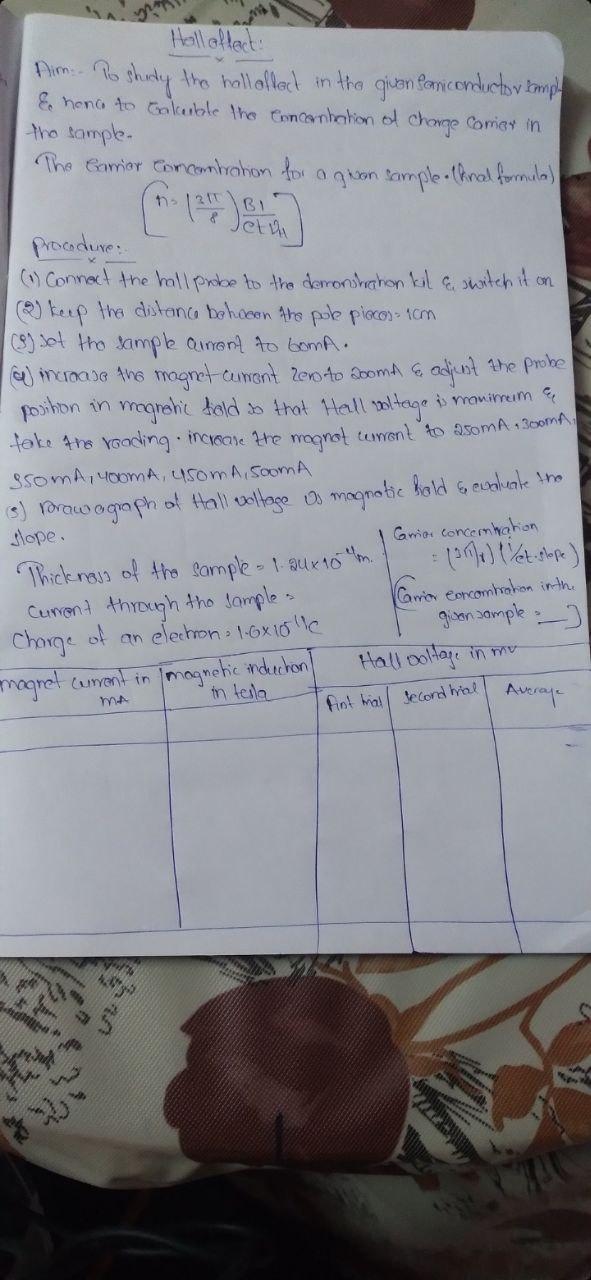 Hall effect:
Aim:- To study the hall effect in the given semiconductor sample
& henc to calculate the concentration of charge carrier in
the sample.
The carrier concentration for a given sample. (final formula)
[n = (3π/8) BI/etVH]
Procedure:-
(1) Connect the hall probe to the demonstration kit & switch it on
(2) keep the distance between the pole pieces = 1cm
(3) set the sample current to 60mA.
(4) increase the magnet current zero to 200mA & adjust the probe
position in magnetic field so that Hall voltage is maximum &
take the reading. increase the magnet current to 250mA, 300mA,
350mA, 400mA, 450mA, 500mA
(5) Draw a graph of Hall voltage vs magnetic field & evaluate the
slope.
Thickness of the sample = 1.24x10⁻⁴m.
current through the sample =
Charge of an electron = 1.6x10⁻¹⁹C
Carrier concentration
= (3π/8) (1/et.slope)
Carrier concentration in the
given sample = __]
magnet current in mA
magnetic induction in tesla
Hall voltage in mv
First trial
second trial
Average